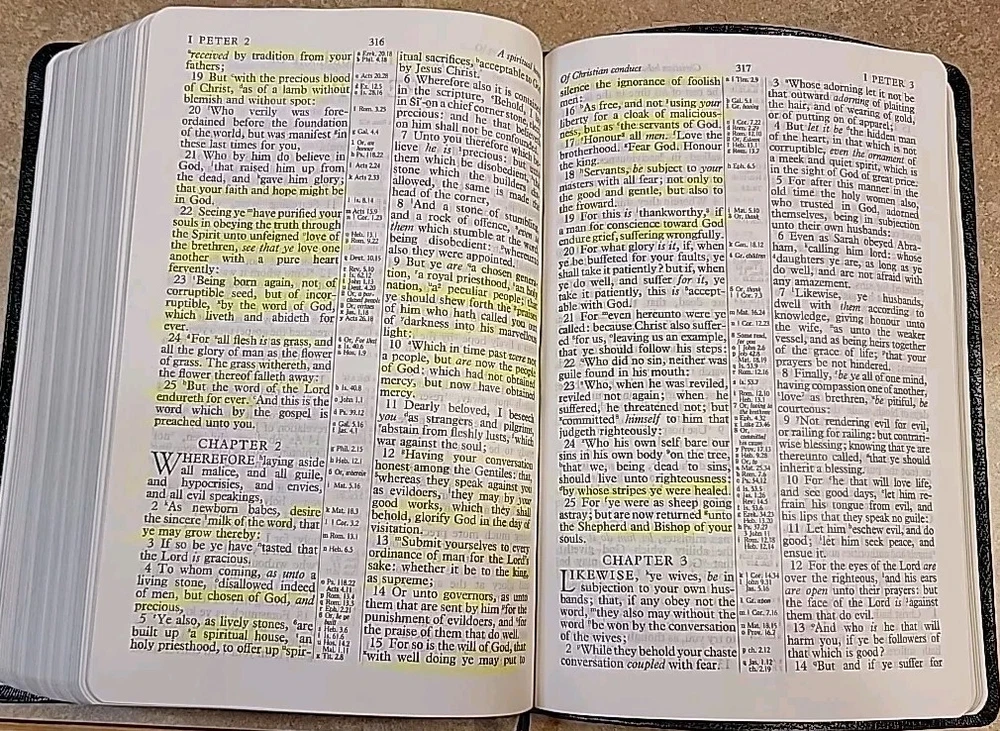 I PETER 2
316
A spiritual
received by tradition from your
fathers;
19 But with the precious blood
of Christ, as of a lamb without
blemish and without spot:
20 Who verily was fore-
ordained before the foundation
of the world, but was manifest in
these last times for you,
21 Who by him do believe in
God, that raised him up from
the dead, and gave him glory;
that your faith and hope might be
in God.
22 Seeing ye have purified your
souls in obeying the truth through
the Spirit unto unfeigned love of
the brethren, see that ye love one
another with a pure heart
fervently:
23 Being born again, not of
corruptible seed, but of incor-
ruptible, by the word of God,
which liveth and abideth for
ever.
24 For all flesh is as grass, and
all the glory of man as the flower
of grass. The grass withereth, and
the flower thereof falleth away:
25 But the word of the Lord
endureth for ever. And this is the
word which by the gospel is
preached unto you.
CHAPTER 2
WHEREFORE laying aside
all malice, and all guile,
and hypocrisies, and envies,
and all evil speakings,
2 As newborn babes, desire
the sincere milk of the word, that
ye may grow thereby:
3 If so be ye have tasted that
the Lord is gracious.
4 To whom coming, as unto a
living stone, disallowed indeed
of men, but chosen of God, and
precious,
5 Ye also, as lively stones, are
built up a spiritual house, an
holy priesthood, to offer up spir-
itual sacrifices, acceptable to God
by Jesus Christ.
6 Wherefore also it is contained
in the scripture, Behold, I lay
in Si-on a chief corner stone, elect,
precious: and he that believeth
on him shall not be confounded.
7 Unto you therefore which be-
lieve he is precious: but unto
them which be disobedient, the
stone which the builders dis-
allowed, the same is made the
head of the corner,
8 And a stone of stumbling,
and a rock of offence, even to
them which stumble at the word,
being disobedient: whereunto
also they were appointed.
9 But ye are a chosen genera-
tion, a royal priesthood, an holy
nation, a peculiar people; that
ye should shew forth the praises
of him who hath called you out
of darkness into his marvellous
light:
10 Which in time past were not
a people, but are now the people
of God: which had not obtained
mercy, but now have obtained
mercy.
11 Dearly beloved, I beseech
you as strangers and pilgrims,
abstain from fleshly lusts, which
war against the soul;
12 Having your conversation
honest among the Gentiles: that,
whereas they speak against you
as evildoers, they may by your
good works, which they shall
behold, glorify God in the day of
visitation.
13 Submit yourselves to every
ordinance of man for the Lord's
sake: whether it be to the king,
as supreme;
14 Or unto governors, as unto
them that are sent by him for the
punishment of evildoers, and for
the praise of them that do well.
15 For so is the will of God, that
with well doing ye may put to
Of Christian conduct
317
I PETER 3
silence the ignorance of foolish
men:
16 As free, and not using your
liberty for a cloak of malicious-
ness, but as the servants of God.
17 Honour all men. Love the
brotherhood. Fear God. Honour
the king.
18 Servants, be subject to your
masters with all fear; not only to
the good and gentle, but also to
the froward.
19 For this is thankworthy, if
a man for conscience toward God
endure grief, suffering wrongfully.
20 For what glory is it, if, when
ye be buffeted for your faults, ye
shall take it patiently? but if, when
ye do well, and suffer for it, ye
take it patiently, this is accept-
able with God.
21 For even hereunto were ye
called: because Christ also suffer-
ed for us, leaving us an example,
that ye should follow his steps:
22 Who did no sin, neither was
guile found in his mouth:
23 Who, when he was reviled,
reviled not again; when he
suffered, he threatened not; but
committed himself to him that
judgeth righteously:
24 Who his own self bare our
sins in his own body on the tree,
that we, being dead to sins,
should live unto righteousness:
by whose stripes ye were healed.
25 For ye were as sheep going
astray; but are now returned unto
the Shepherd and Bishop of your
souls.
CHAPTER 3
LIKEWISE, ye wives, be in
subjection to your own hus-
bands; that, if any obey not the
word, they also may without the
word be won by the conversation
of the wives;
2 While they behold your chaste
conversation coupled with fear.
3 Whose adorning let it not be
that outward adorning of plaiting
the hair, and of wearing of gold,
or of putting on of apparel;
4 But let it be the hidden man
of the heart, in that which is not
corruptible, even the ornament of
a meek and quiet spirit, which is
in the sight of God of great price.
5 For after this manner in the
old time the holy women also,
who trusted in God, adorned
themselves, being in subjection
unto their own husbands:
6 Even as Sarah obeyed Abra-
ham, calling him lord: whose
daughters ye are, as long as ye
do well, and are not afraid with
any amazement.
7 Likewise, ye husbands,
dwell with them according to
knowledge, giving honour unto
the wife, as unto the weaker
vessel, and as being heirs together
of the grace of life; that your
prayers be not hindered.
8 Finally, be ye all of one mind,
having compassion one of another,
love as brethren, be pitiful, be
courteous:
9 Not rendering evil for evil,
or railing for railing: but contrari-
wise blessing; knowing that ye are
thereunto called, that ye should
inherit a blessing.
10 For he that will love life,
and see good days, let him re-
frain his tongue from evil, and
his lips that they speak no guile:
11 Let him eschew evil, and do
good; let him seek peace, and
ensue it.
12 For the eyes of the Lord are
over the righteous, and his ears
are open unto their prayers: but
the face of the Lord is against
them that do evil.
13 And who is he that will
harm you, if ye be followers of
that which is good?
14 But and if ye suffer for